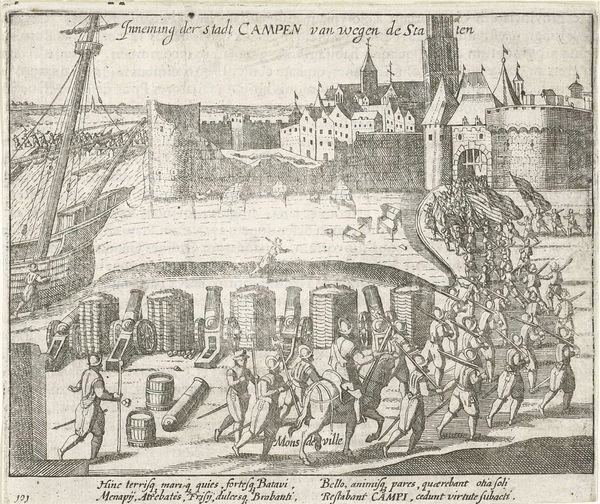 Inneming der stadt CAMPEN van wegen de Staten
Mons de ville
Hinc terrisq, mari-q quies, fortesq Batavi,
Menapij, Atrebates, Frisij, dulcesq Brabanti,
Bello, animisq pares, quærebant otia soli
Restabant CAMPI, cedunt virtute subacti.
101